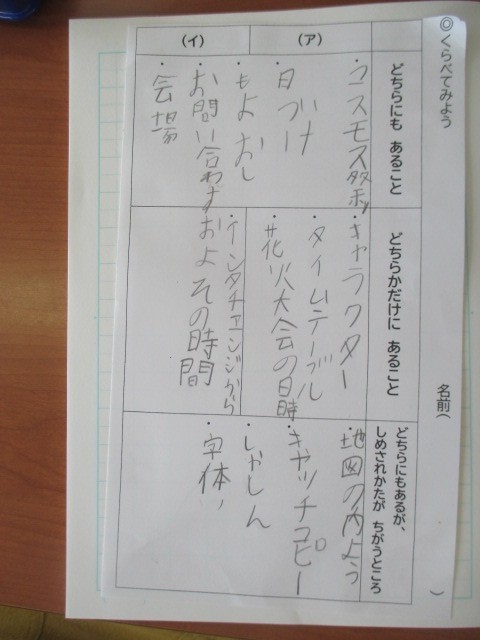 ◎くらべてみよう
名前( )
(ア)
(イ)
どちらにも あること
・コスモス祭り
・日づけ
・もよおし
・お問い合わせ
・会場
どちらかだけに あること
・キャラクター
・タイムテーブル
・花火大会の日時
・インタチァンジから
およその時間
どちらにもあるが、
しめされかたが ちがうところ
・地図の内よう
・キャッチコピー
・しゃしん
・字体、